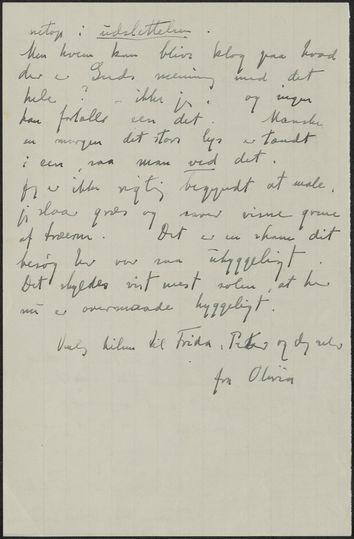 netop i udslettelsen.
Men hvem kan blive klog paa hvad
der er Guds mening med det
hele? – ikke jeg, og ingen
kan fortælle een det. Maaske
en morgen det store lys er tændt
i een, saa man ved det.
Jeg er ikke rigtig begyndt at male,
jeg slaar græs og saver visne grene
af træerne. Det er en skam dit
besøg her var saa uhyggeligt.
Det skyldes vist mest solen, at her
nu er overmaade hyggeligt.
Venlig hilsen til Frida, Peter og dig selv
fra Olivia